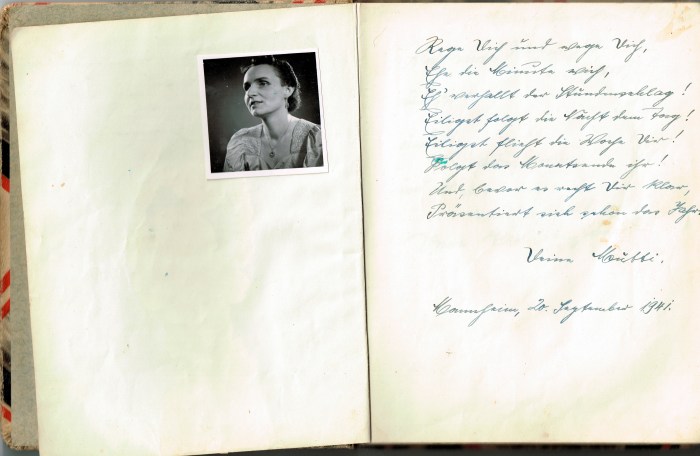 Rege Dich und rege Dich,
Ehe die Minute wich,
Es verhallt der Stundenschlag!
Eiligst folgt die Nacht dem Tag!
Eiligst flieht die Woche Dir!
Folgt das Monatsende ihr!
Und, bevor es recht Dir klar,
Präsentiert sich schon das Jahr
Deine Mutti.
Mannheim, 20. September 1941.